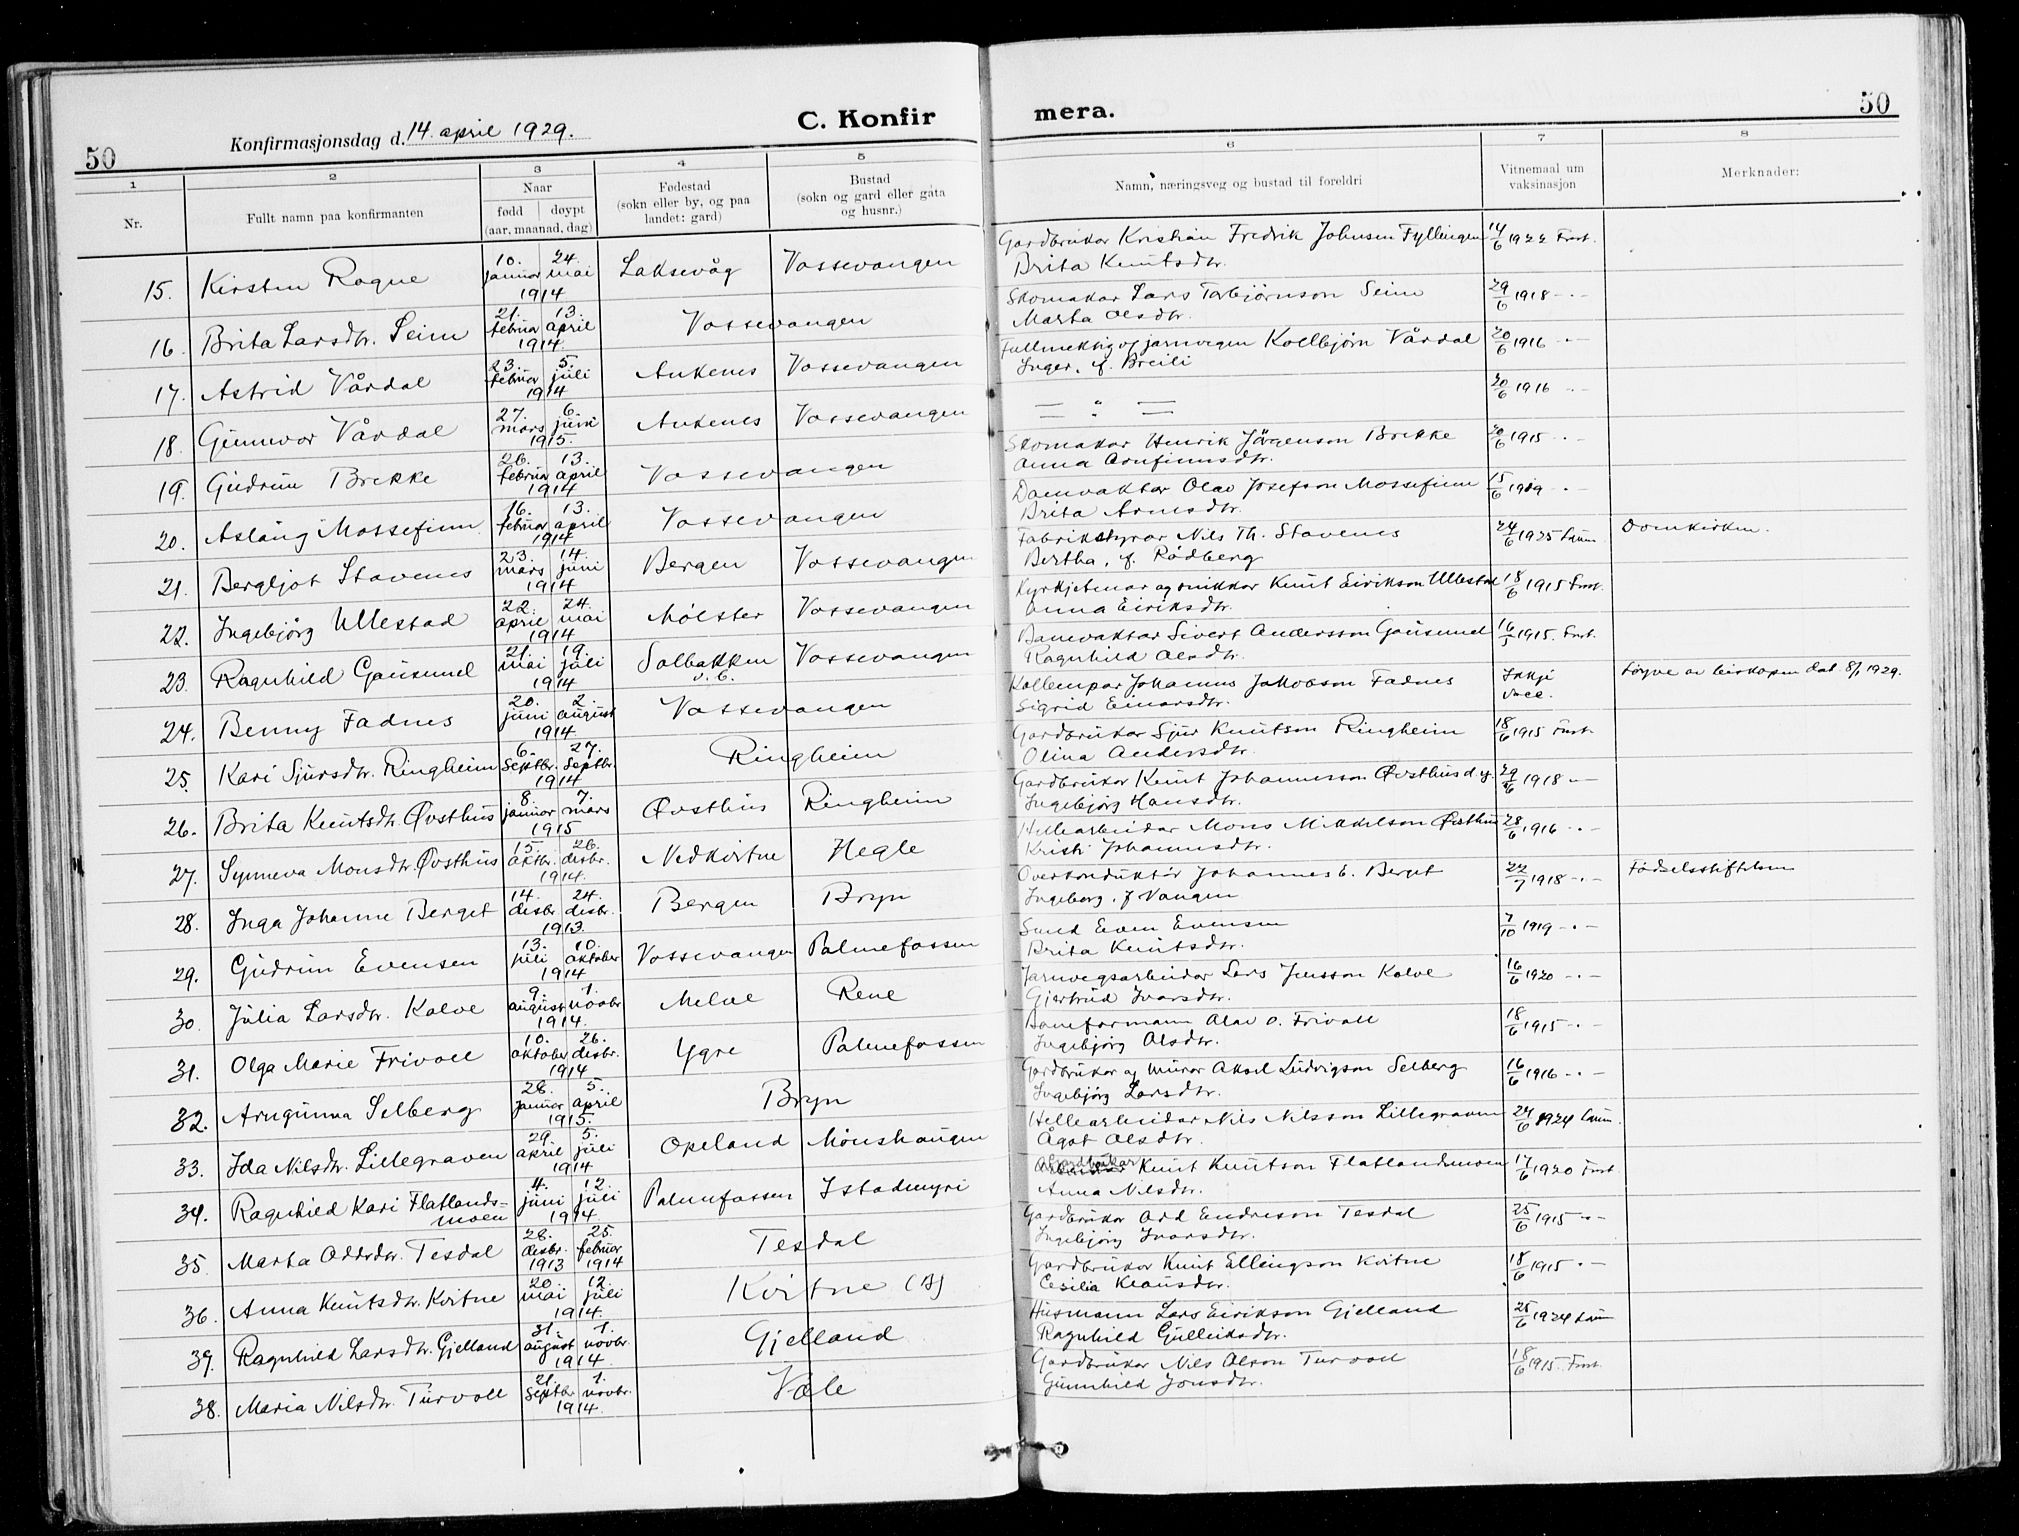 50
Konfirmasjonsdag d. 14. april 1929.
C. Konfir
mera.
50
1 2 3 4 5 6 7 8
Nr.
Fullt namn paa konfirmanten
Naar
født | døypt
(aar, maanad, dag)
Fødestad
(sokn eller by, og paa
landet: gard)
Bustad
(sokn og gard eller gata
og husnr.)
Namn, næringsveg og bustad til foreldri
Vitnemaal um
vaksinasjon
Merknader:
15. Kirsten Rogne 10. januar 24. mai 1914 Laksevåg Vossevangen Gardbrukar Kristian Fredrik Johnsen Fyllingen 14/6 1922 Frst.
Brita Knutsdtr.
16. Brita Larsdtr. Seim 21. februar 13. april 1914 Vossevangen Skomakar Lars Torbjørnson Seim 29/6 1918 -.-
Marta Olsdtr.
17. Astrid Vårdal 23. februar 5. juli 1914 Ankenes Vossevangen Fullmektig v/ jarnvegen Kolbjørn Vårdal 20/6 1916 -.-
Inger, f. Breili
18. Gunnvor Vårdal 27. mars 6. juni 1915. Ankenes Vossevangen — " — 20/6 1916 -.-
19. Gudrun Brekke 26. februar 13. april 1914 Vossevangen Skomakar Henrik Jörgenson Brekke 20/6 1915 -.-
Anna Arnfinnsdtr.
20. Aslaug Mossefinn 16. februar 13. april 1914 Vossevangen Damvaktar Olav Josefson Mossefinn 15/6 1919 -.-
Brita Arnesdtr.
21. Bergljot Stavenes 23. mars 14. juni 1914 Bergen Vossevangen Fabrikstyrar Nils Th. Stavenes 24/6 1925 Domkirken.
Bertha, f. Rödberg
22. Ingebjörg Ullestad 22. april 24. mai 1914 Mölster Vossevangen Kyrkjetenar og snikkar Knut Eirikson Ullestad 18/6 1915 Frst.
Anna Eiriksdtr.
23. Ragnhild Gausund 21. mai 19. juli 1914 Solbakken Vossevangen Banevaktar Sivert Andersson Gausund 16/ 1915. Frst.
Ragnhild Olsdtr.
24. Benny Fadnes 20. juni 2. august 1914 Vossevangen Johannes Jakobson Fadnes Ikkje vacc. Løyve av biskopen dat. 8/1 1929.
Sigrid Einarsdtr.
25. Kari Sjursdtr. Ringheim 6. Septbr. 27. Septbr. 1914 Ringheim Gardbrukar Sjur Knutson Ringheim 18/6 1915 Frst.
Olina Andersdtr.
26. Brita Knutsdtr. Øvsthus 8. januar 7. mars 1915 Øvsthus Ringheim Gardbrukar Knut Johannesson Øvsthus d.y. 29/6 1918 -.-
Ingebjørg Hansdtr.
27. Synneva Monsdtr. Øvsthus 15. oktbr. 26. desbr. 1914. Nedkvitne Hegle Hellearbeidar Mons Mikkelson Øvsthus 28/6 1916 -.-
Kristi Johannesdtr.
28. Inga Johanne Berget 14. desbr. 24. desbr. 1913. Bergen Bryn Overkonduktör Johannes b. Berget 22/7 1918 -.- Fødselsstiftelsen
Ingeborg, f. Vangen
29. Gudrun Evensen 13. juli 10. oktober 1914 Vossevangen Palmefossen Smed Even Evensen 7/10 1919 -.-
Brita Knutsdtr.
30. Julia Larsdtr. Kolve 9. august 1. novbr. 1914. Melve Rene Jarnvegsarbeidar Lars Jensson Kolve 16/6 1920 -.-
Gjertrud Ivarsdtr.
31. Olga Marie Frivoll 10. oktober 26. desbr. 1914 Ygre Palmefossen Baneformann Olav O. Frivoll 18/6 1915 -.-
Ingebjörg Olsdtr.
32. Arngunna Selberg 28. januar 5. april 1915. Bryn Gardbrukar og murar Aksel Ludvigson Selberg 16/6 1916 -.-
Ingebjörg Larsdtr.
33. Ida Nilsdtr. Lillegraven 29. april 5. juli 1914 Opeland Mönshaugen Hellearbeidar Nils Nilsson Lillegraven 24/6 1924
Ågot Olsdtr.
34. Ragnhild Kari Flatlands-moen 4. juni 12. juli 1914 Palmefossen Istadmyri Gardbrukar Knut Knutson Flatlandsmoen 17/6 1920 Frst.
Anna Nilsdtr.
35. Marta Oddsdtr. Tesdal 28. desbr. 1913 25. februar 1914 Tesdal Gardbrukar Odd Endreson Tesdal 25/6 1915 -.-
Ingebjörg Ivarsdtr.
36. Anna Knutsdtr. Kvitne 20. mai 12. juli 1914. Kvitne Gardbrukar Knut Ellingson Kvitne 18/6 1915 -.-
Cesilia Klausdtr.
37. Ragnhild Larsdtr. Gjelland 31. august 1. novbr. 1914 Gjelland Husmann Lars Eirikson Gjelland 25/6 1924
Ragnhild Gulleiksdtr.
38. Maria Nilsdtr. Turvoll 21. Septbr. 1. novbr. 1914. Væle Gardbrukar Nils Olson Turvoll 18/6 1915. Frst.
Gunnhild Jonsdtr.